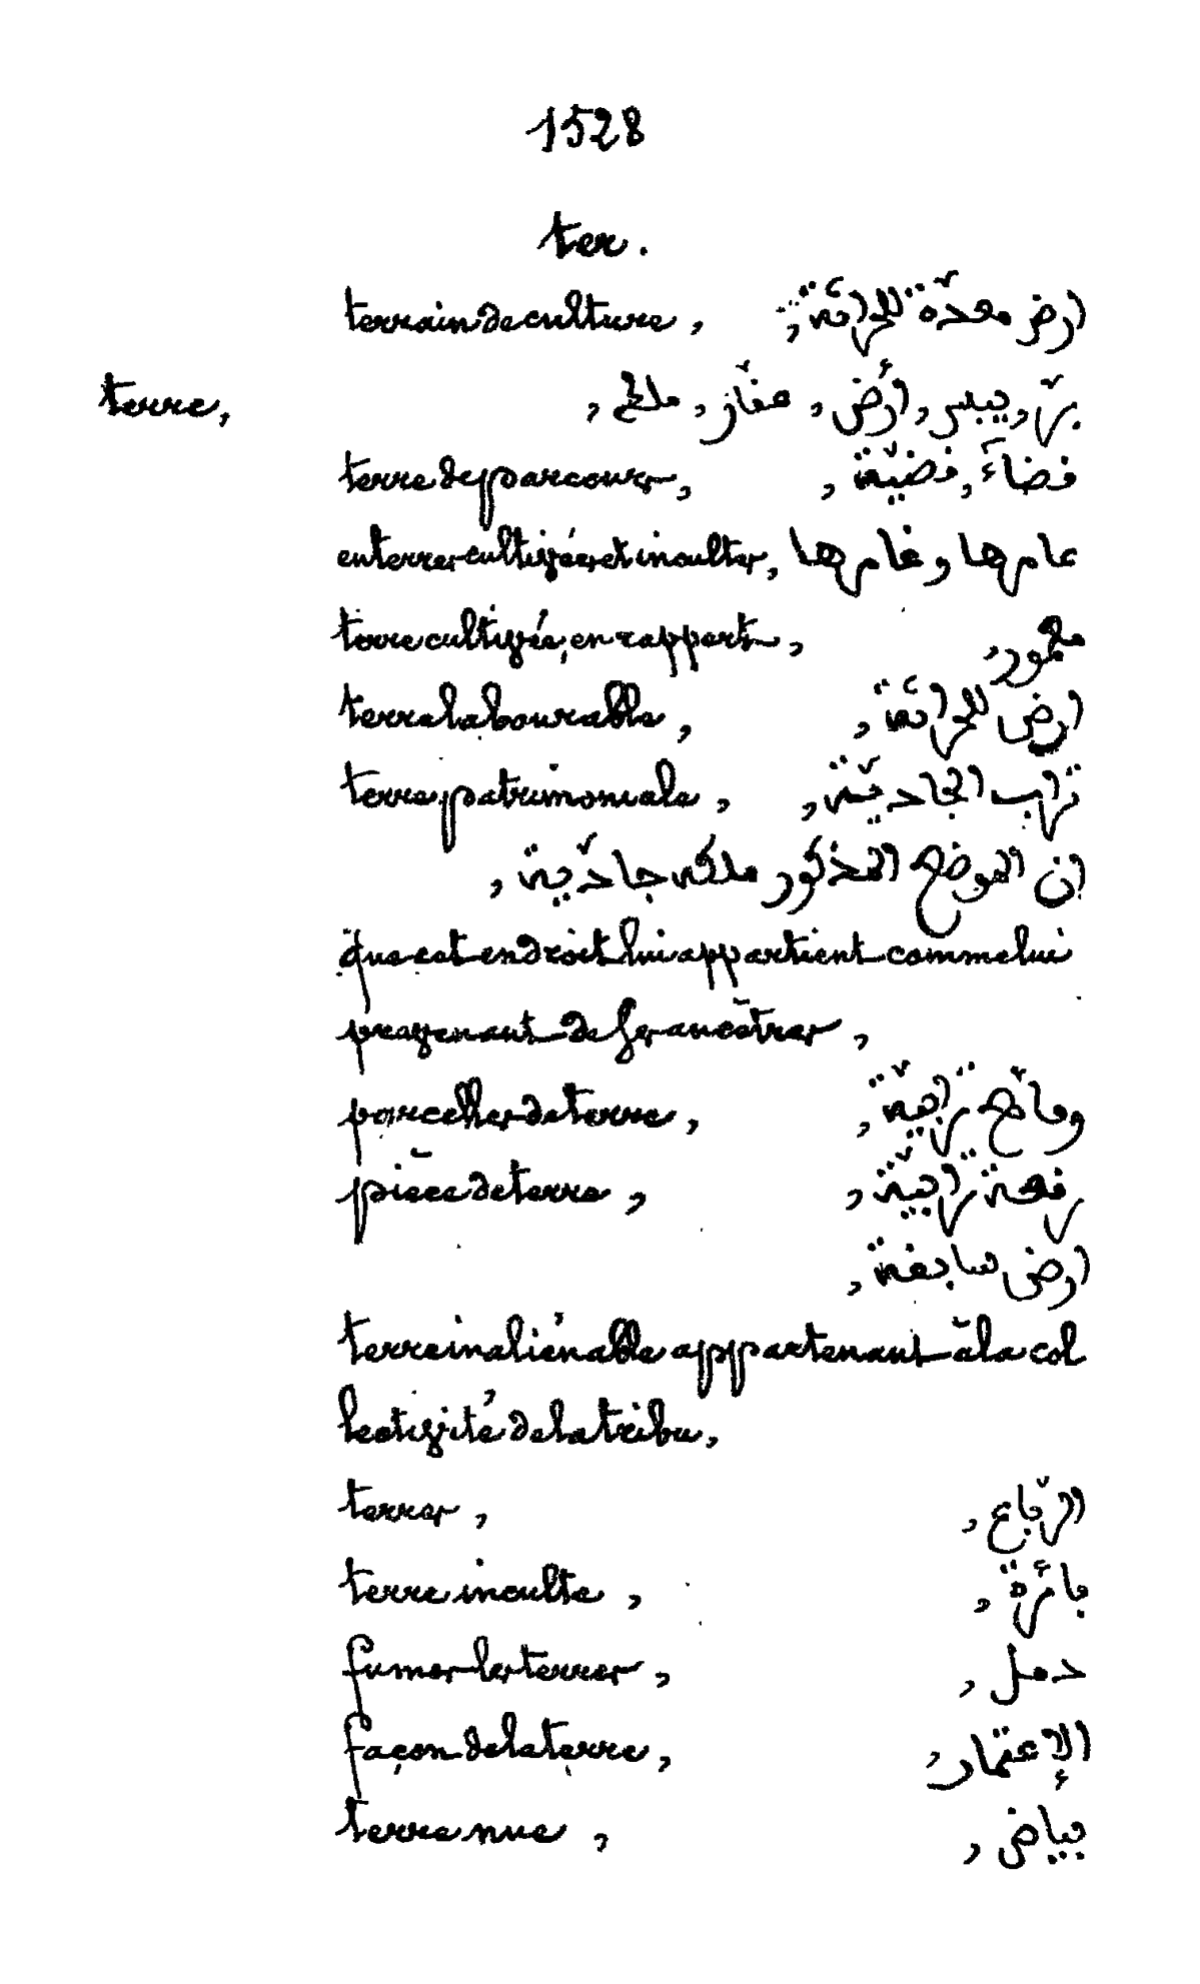 1528
ter.
terrain de culture, ارض معدّة للحراثة,
terre, برّ, يبس, أرض, عفّار, ملح,
terre de parcours, فضاء, فضيّة,
en terres cultivées et incultes, عامرها وغامرها
terre cultivée, en rapport, معمور,
terre labourable, ارض للحراثة,
terre patrimoniale, تراب الجاديّة,
ان الموضع المذكور ملكه جاديّة,
que cet endroit lui appartient comme lui
provenant de ses ancêtres,
parcelles de terre, ترابيّة,
pièce de terre, رقعة ترابيّة,
ارض سابقة,
terre inaliénable appartenant à la col
lectivité de la tribu,
terres, الرّباع,
terre inculte, بائرة,
fumer les terres, دمل,
façon de la terre, الإعتمار,
terre nue, بياض,